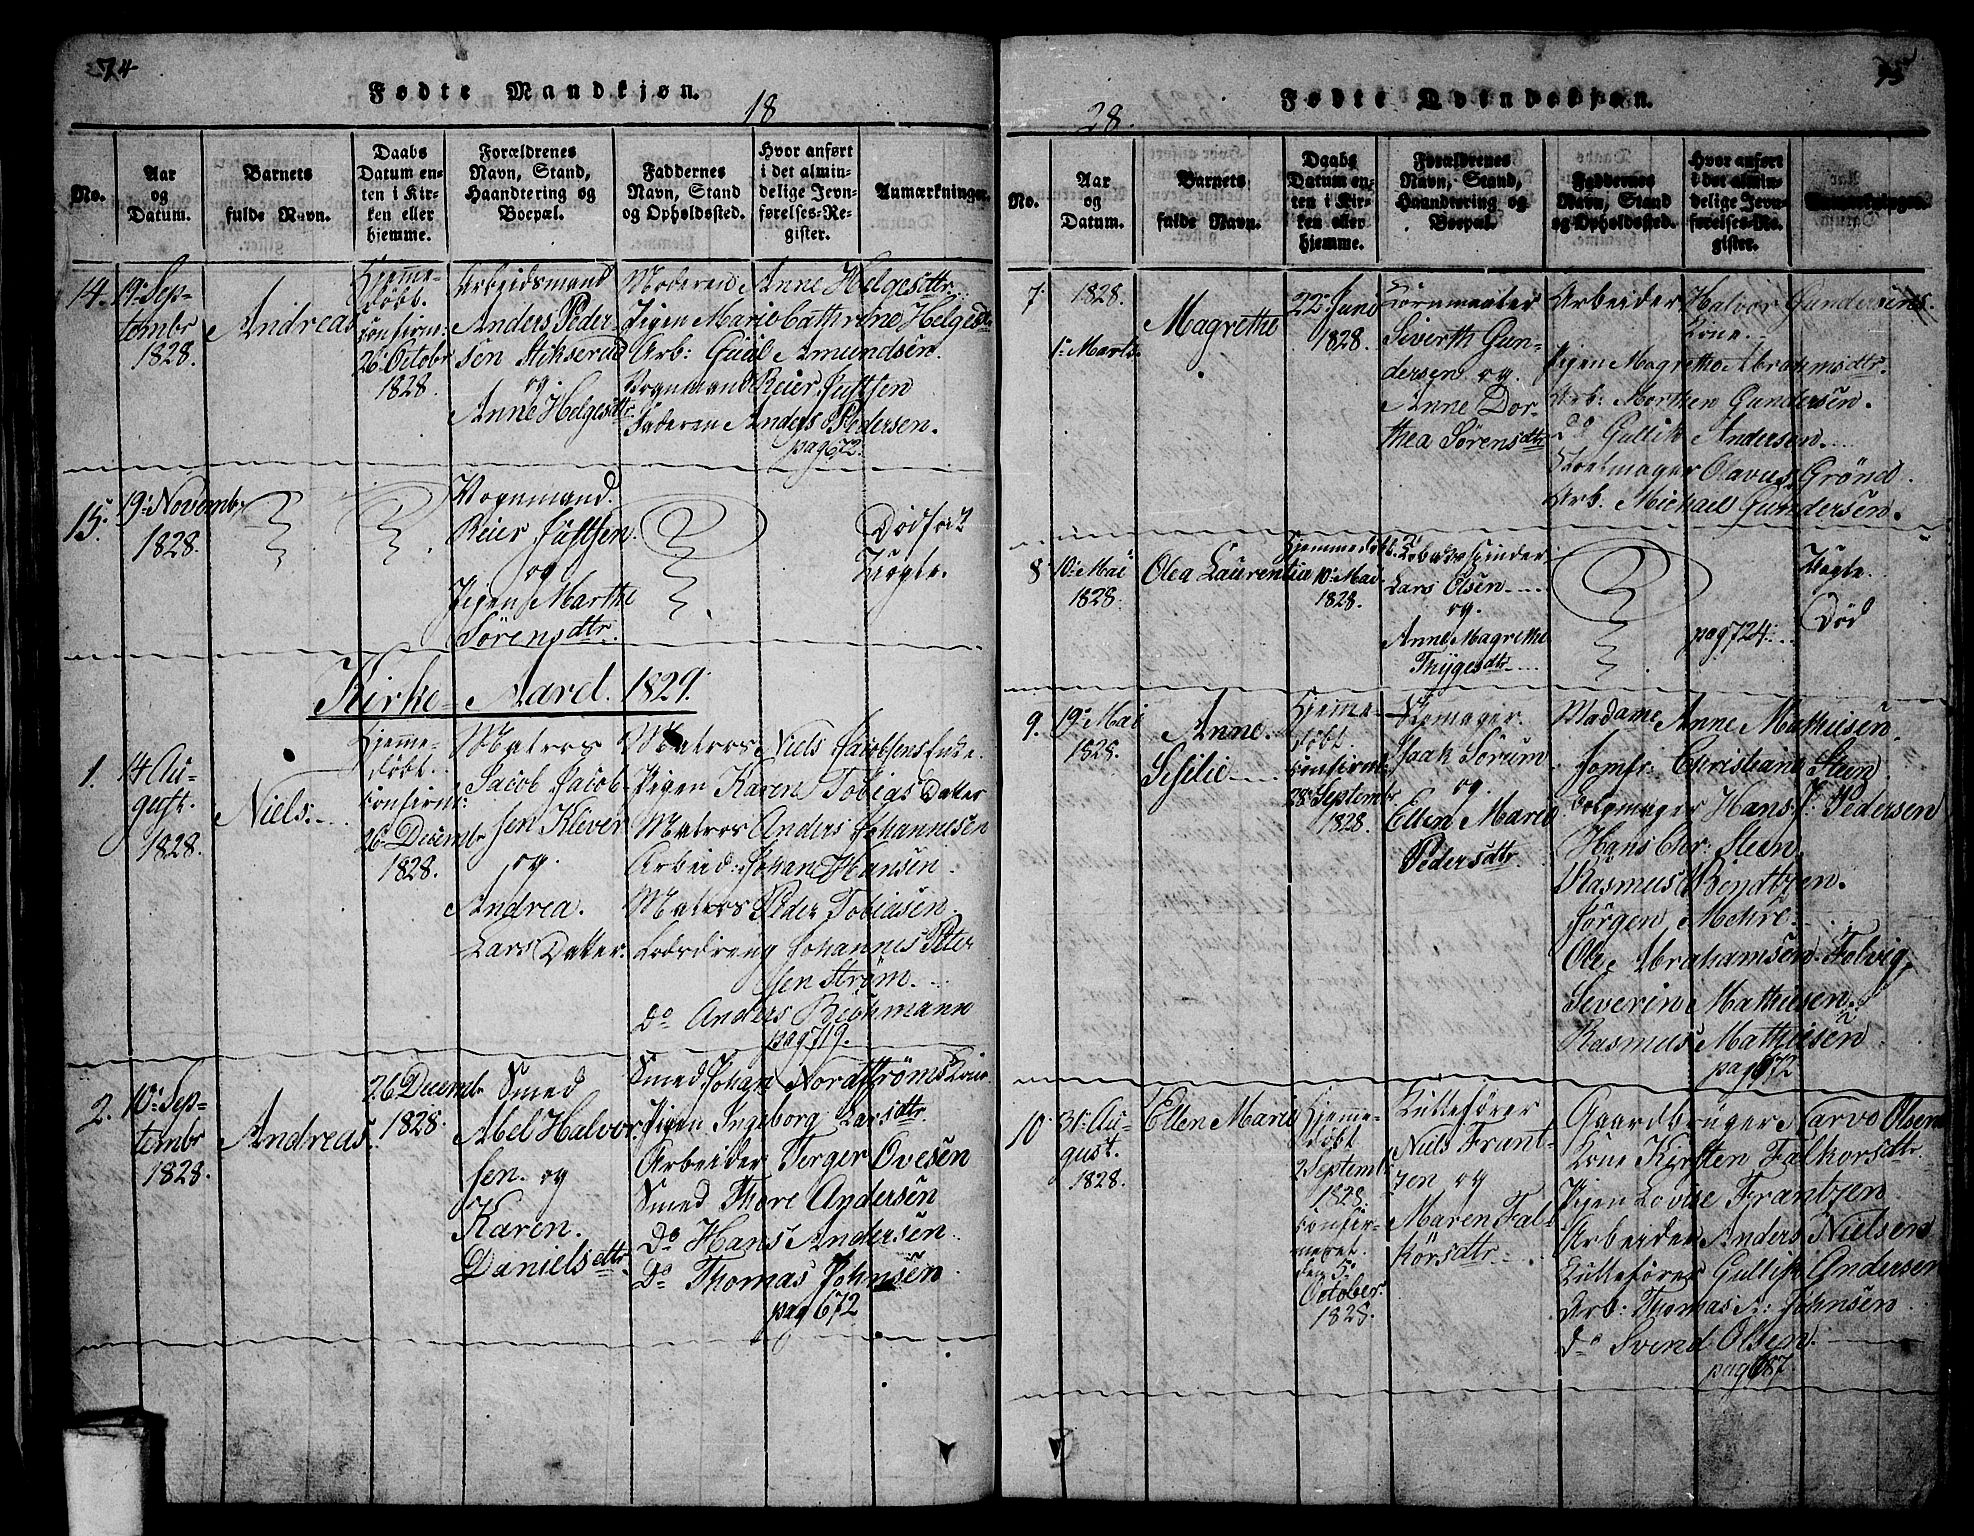 74
Fødte Mandkjøn.
18
No.
Aar
og
Datum.
Barnets
fulde Navn.
Daabs
Datum en-
ten i Kir-
ken eller
hjemme.
Forældrenes
Navn, Stand,
Haandtering og
Boepæl.
Faddernes
Navn, Stand
og Opholdssted.
Hvor anført
i det almin-
delige Jevn-
førelses-Re-
gister.
Anmærkninger.
14.
19 Sep-
tembr
1828.
Andreas
Hjemme-
døbt.
Confirm:
26 Octobr
1828.
Arbeidsmand
Anders Peder-
sen
og
Anne Helgesdtr
Moderen Anne Helgesdtr.
Pigen Marie Cathrine Helgesdtr
Arb: Guul Amundsen.
Vognmand Reier Justsen
Faderen Anders Pedersen.
pag 672.
15.
19 Novembr
1828.
Vognmand
Reier Justsen.
og
Pigen Marthe
Sørensdtr.
Dødfødt
Uægte.
Kirke-Aaret 1829.
1.
14 Au-
gust.
1828.
Niels.
Hjemme-
døbt.
Confirm:
26 Decembr
1828.
Matros
Jacob Jacob-
sen Klever
og.
Andrea.
Lars Datter.
Matros Niels Jacobsens Enke.
Pigen Karen Tobias Datter
Matros Anders Johannesen
Arbeid: Johan Hansen.
Matros Peder Tobiasen.
Lodsdreng Johannes Peter
sen Strøm.
Do Anders
pag 719.
2.
10 Sep-
tembr
1828.
Andreas.
26 Decembr
1828.
Smed
Abel Halvor-
sen. og
Karen.
Danielsdtr
Smed Johan Nordstrøms Kone
Pigen Ingeborg Larsdtr.
Arbeider Terger Ovesen
Smed Thore Andersen
Do Hans Andersen.
Do Thomas Johnsen
pag 672
75
Fødte Qvindekjøn.
28.
No.
Aar
og
Datum.
Barnets
fulde Navn.
Daabs
Datum en-
ten i Kir-
ken eller
hjemme.
Forældrenes
Navn, Stand,
Haandtering og
Boepæl.
Faddernes
Navn, Stand
og Opholdssted.
Hvor anført
i det almin-
delige Jevn-
førelses-Re-
gister.
Anmærkninger.
7.
1828.
1 Marts.
Magrethe
22 Juni
1828.
Siverth Gun-
dersen og.
Anne Dor-
thea Sørensdtr
Arbeider Halvor Gundersens
Kone.
Pigen Magrethe Abrahmsdtr.
Arb: Morthen Gundersen.
do Gullik Andersen.
Skomager Olavus Grønd.
Arb. Michael Gundersen.
8
10 Mai
1828.
Olea Laurentia
Hjemmedøbt
10 Mai
1828.
Tobaksspinder
Lars Olsen
og.
Anne Magrethe
Thygesdtr.
pag 724.
Uægte.
Død
9.
19 Mai
1828.
Anne.
Sesilie
Hjemme-
døbt.
Confirm:
28 Septembr
1828.
Isaak Sørum
og.
Ellen Marie
Pedersdtr
Madame Anne Mathiesen.
Jomfr: Christiane Steen.
Hans P. Pedersen
Hans Chr: Steen.
Rasmus Bendtzen.
Jørgen Mehre.
Ole Abrahamsen Folvig,
Severin Mathiesen.
Rasmus Mathiesen
pag 672
10
31 Au-
gust.
1828.
Ellen Marie
Hjemme-
døbt
2 Septembr
1828.
Confir-
meret.
den 5
October.
1828.
Kulltefører
Niels Frant-
zen og
Maren Fal-
korsdtr
Gaardbruger Narvo Olsens
Kone Kirsten Falkorsdtr
Pigen Lovise Frantzen
Arbeider Anders Nielsen
Kulltefører Gullik Andersen
Arb: Thomas A: Johnsen
do Svend Olsen.
pag 687.